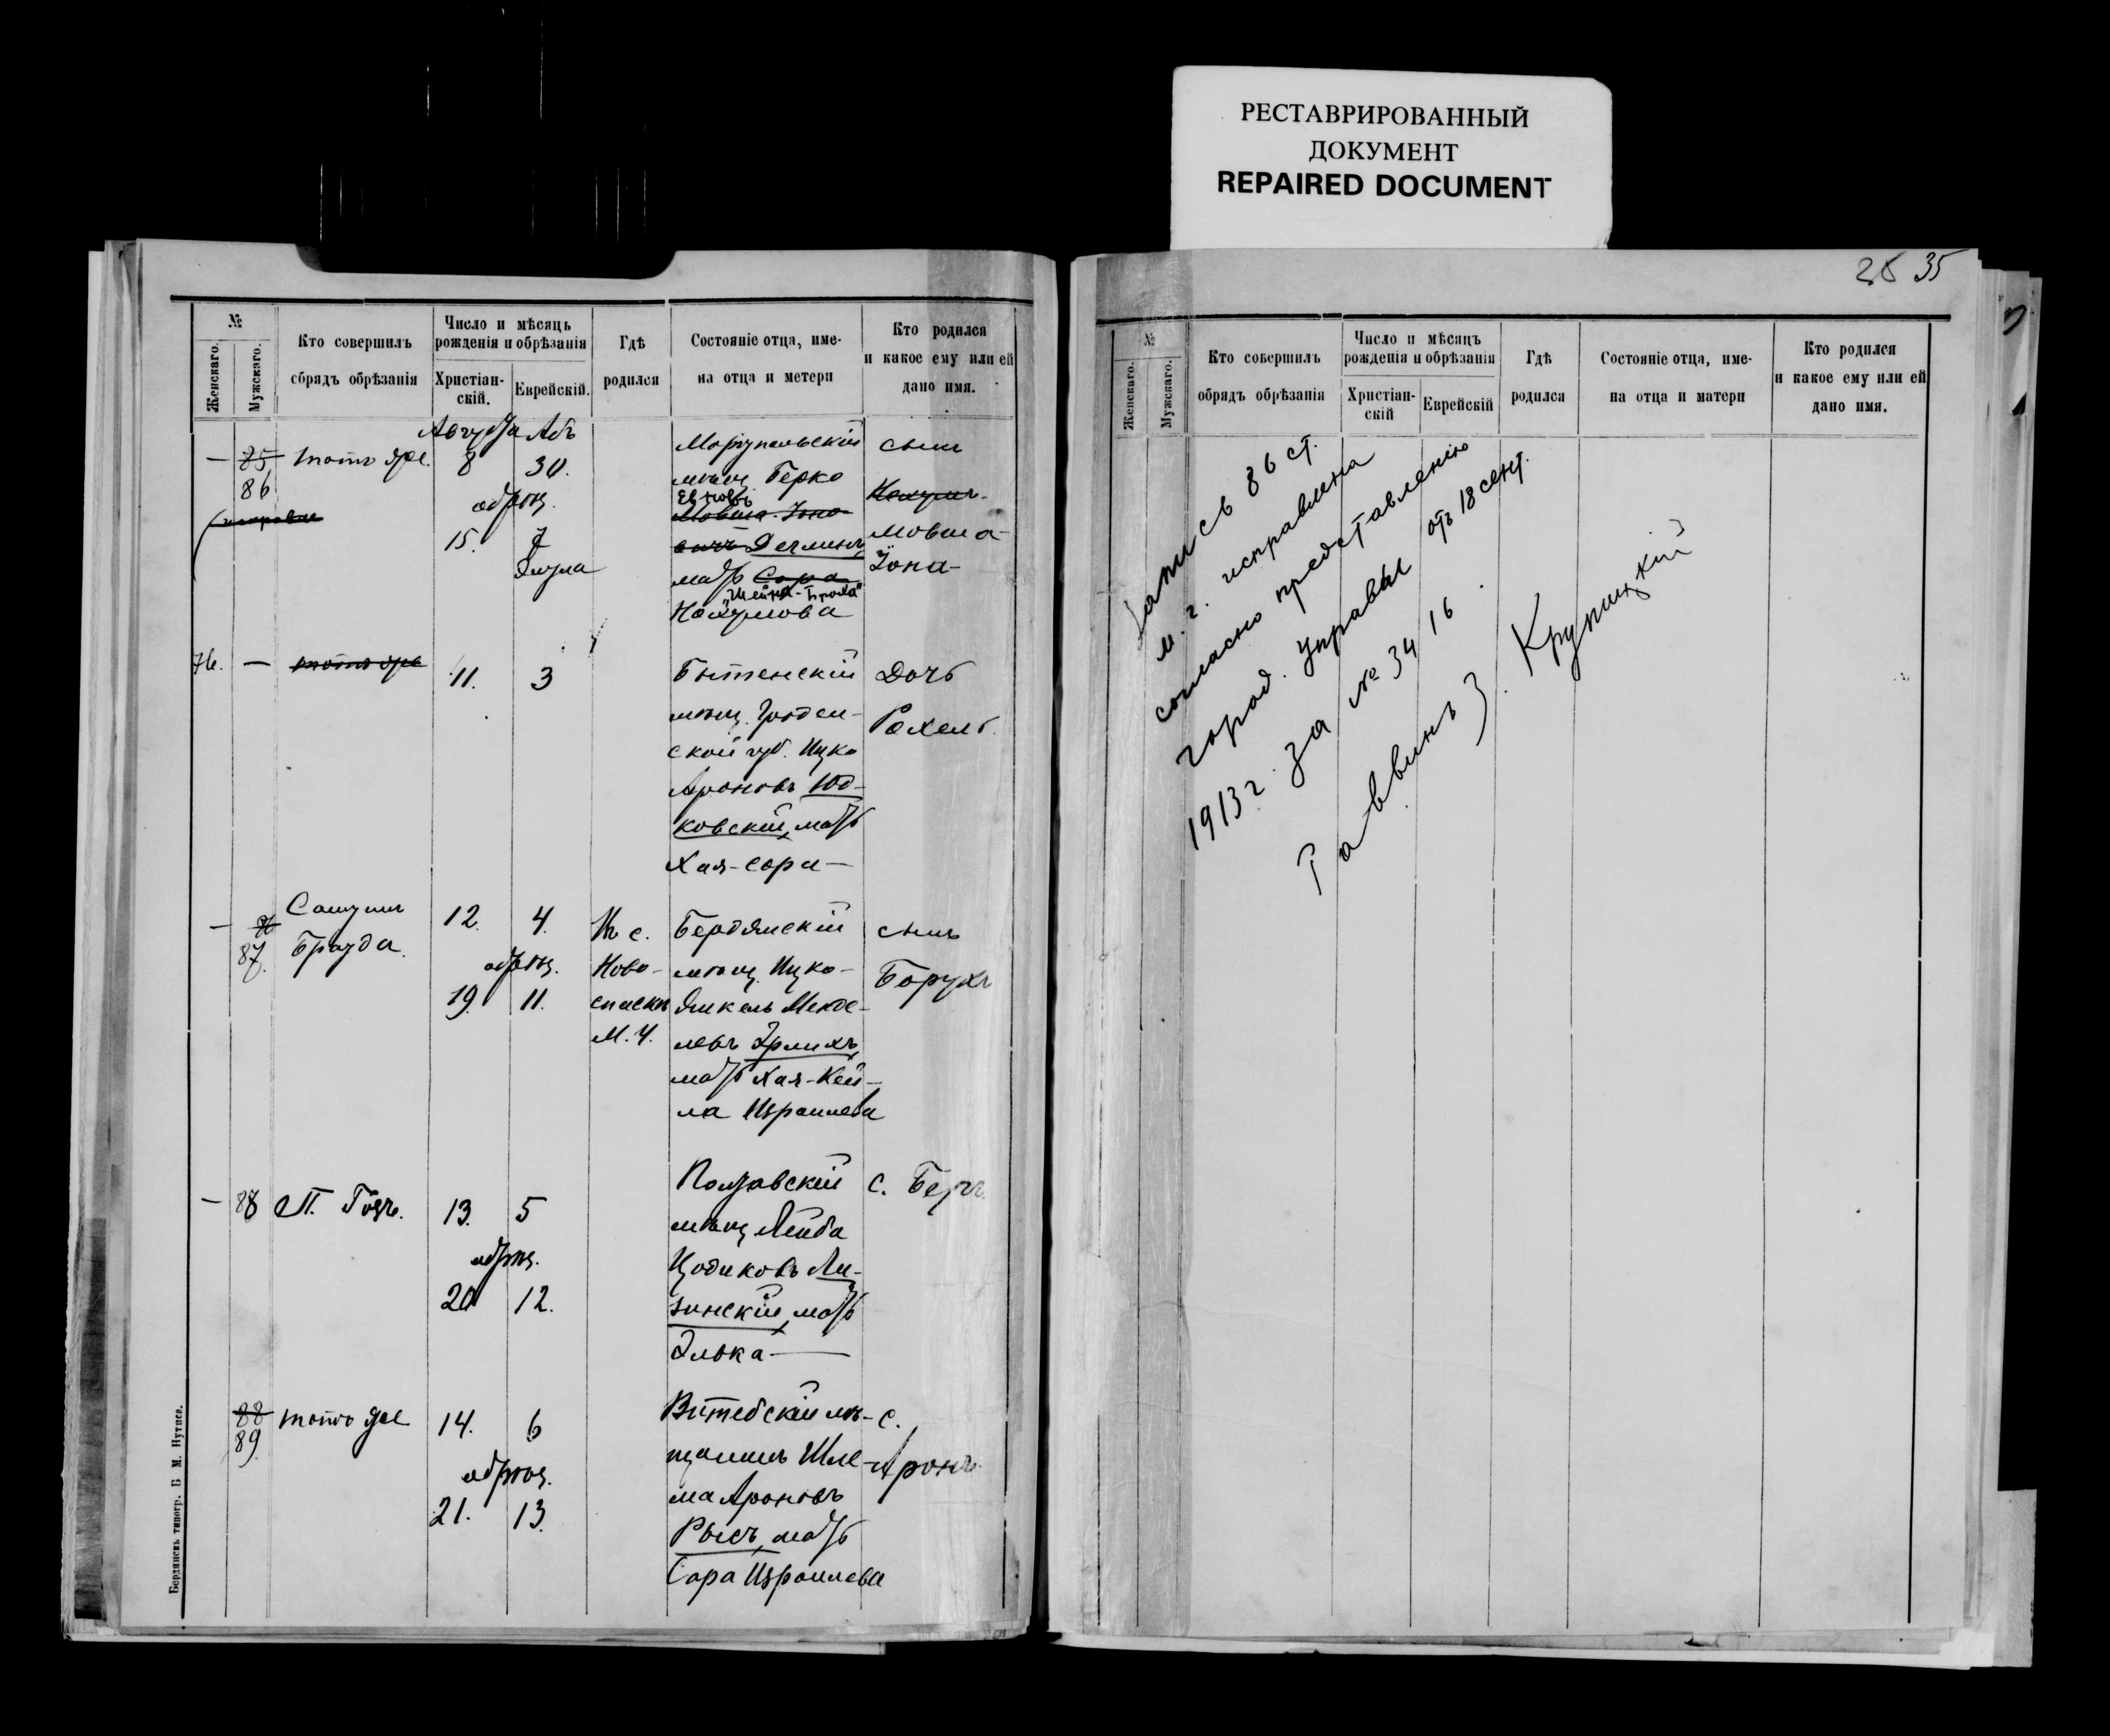 РЕСТАВРИРОВАННЫЙ
ДОКУМЕНТ
REPAIRED DOCUMENT
№
Женскаго.
Мужскаго.
Кто совершилъ
сбрядъ обрѣзанія
Число и мѣсяцъ
рожденія и обрѣзанія
Христіан-
скій.
Еврейскій.
Гдѣ
родился
Состояніе отца, име-
на отца и метери
Кто родился
и какое ему или ей
дано имя.
Августа Абъ
—
85
86
тотъ же.
8
30.
обрѣз.
15.
7
Элула
Маріупольскій
мѣщ. Берко
Мовша-Іоно-
вичъ
мать Сара
"Шейна-Броха"
Нахумова
сынъ
Нахумъ.
Мовша-
Іона-
76.
—
тотъ же
11.
3
Бытенскій
мѣщ. Гроден-
ской губ. Ицко
Ароновъ Юд-
ковскій, мать
Хая-Сора—
Дочь
Рохель.
—
87.
Самуилъ
Брауда.
12.
4.
обрѣз.
19.
11.
Въ с.
Ново-
спаскъ
М. У.
Бердянскій
мѣщ. Ицко-
Янкель Менде-
левъ Эрлихъ,
мать Хая-Кей-
ла Израилева
сынъ
Борухъ
—
88
П. Гозъ.
13.
5
обрѣз.
20
12.
Полтавскій
мѣщ. Лейба
Цодиковъ Ли-
зинскій, мать
Элька—
с. Беръ.
88
89.
тотъ же
14.
6
обрѣз.
21.
13.
Витебскій мѣ-
щанинъ Шле-
ма Ароновъ
Рысъ, мать
Сара Израилева
с.
Аронъ.
Бердянскъ типогр. Б М. Нутиса.
25 35
№
Женскаго.
Мужскаго.
Кто совершилъ
обрядъ обрѣзанія
Число и мѣсяцъ
рожденія и обрѣзанія
Христіан-
скій
Еврейскій
Гдѣ
родился
Состояніе отца, име-
на отца и матери
Кто родился
и какое ему или ей
дано имя.
Запись 86 ст.
м. г. исправлена
согласно представленію
город. управы отъ 18 сент.
1913 г. за № 3416.
Раввинъ З. Крупицкій